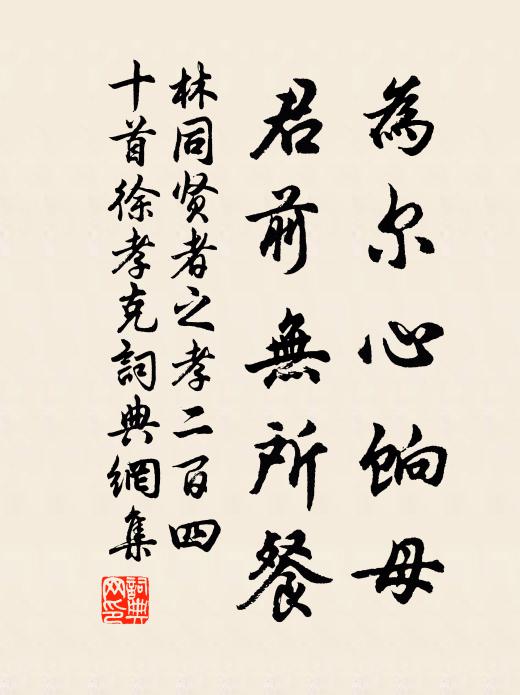 為尔心餉母
君前無所餐
林同贤者之孝二百四
十首徐孝克詞典網集
詞典網印